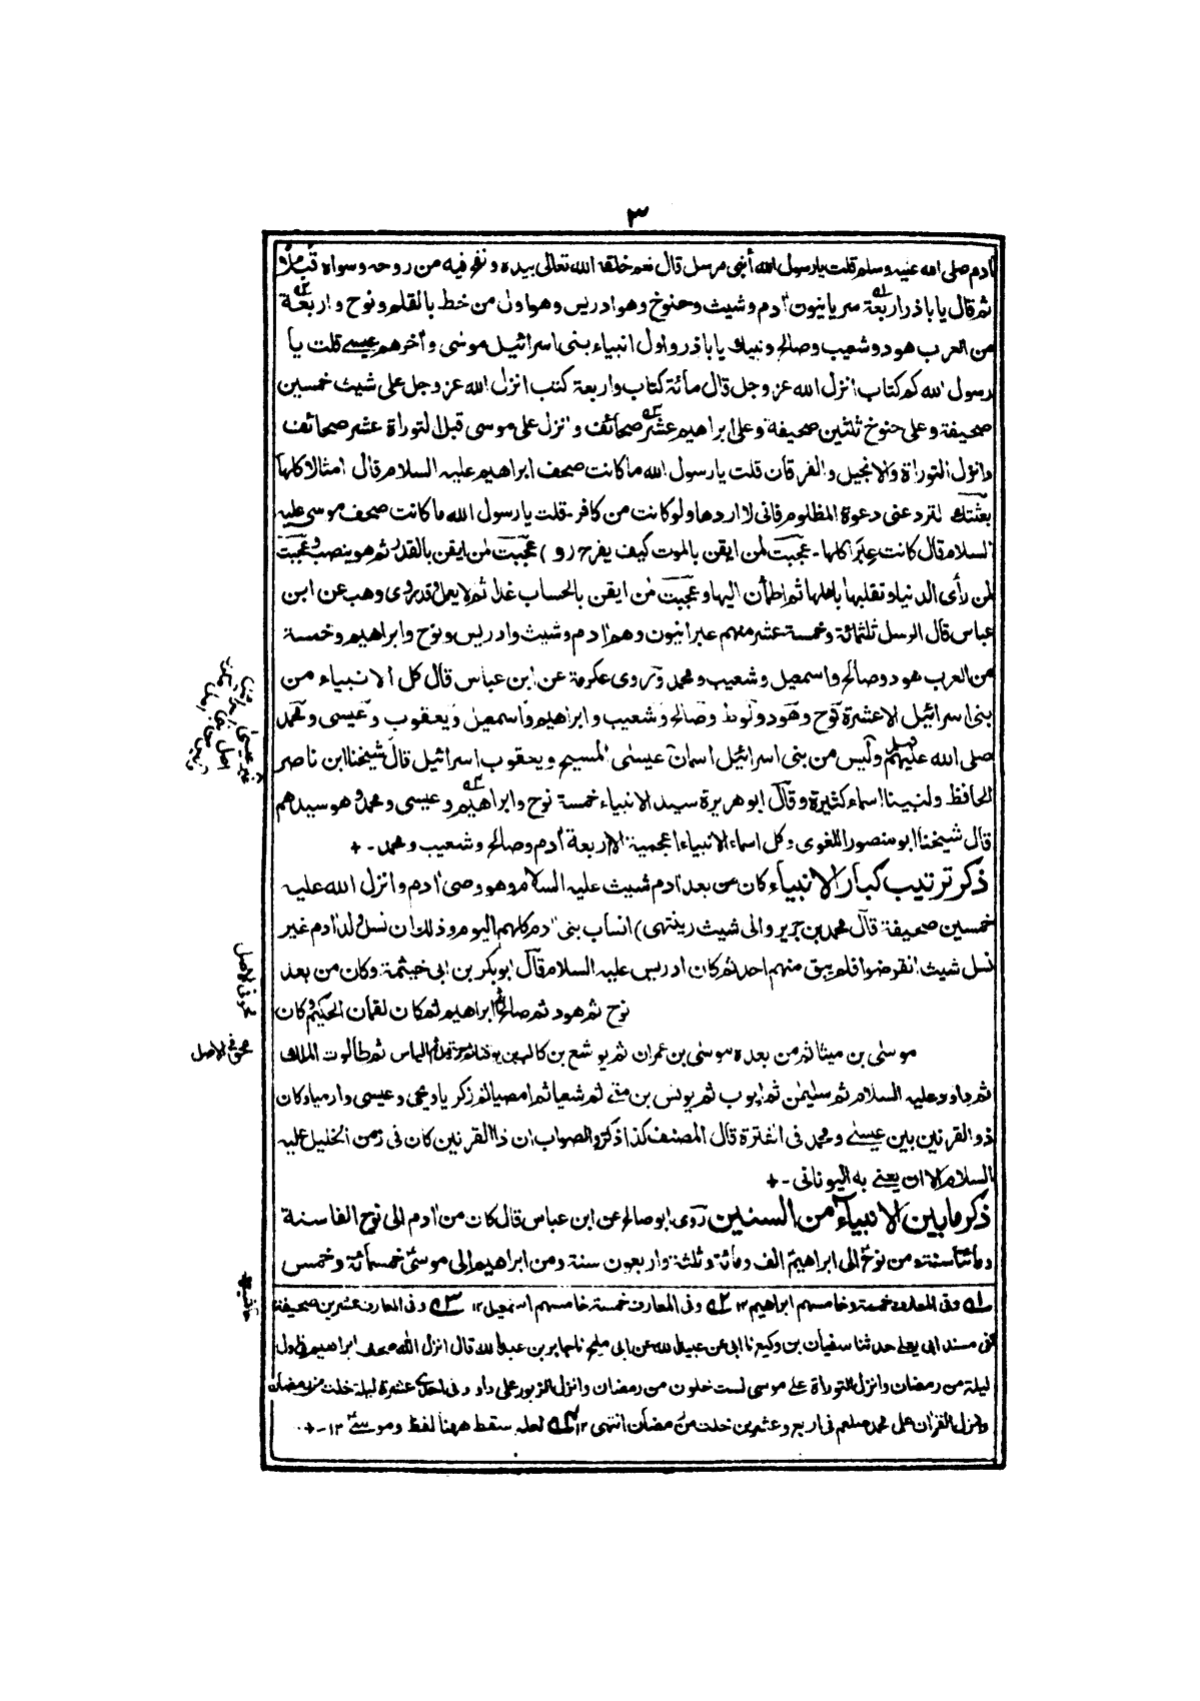 ٣
آدم صلى الله عليه وسلم قلت يا رسول الله أنبي مرسل قال نعم خلقه الله تعالى بيده ونفخ فيه من روحه وسواه قبلا
ثم قال يا باذر اربعة سريانيون آدم وشيث وحنوخ وهو ادريس وهو اول من خط بالقلم ونوح واربعة
من العرب هود وشعيب وصالح ونبيك يا باذر واول انبياء بنى اسرائيل موسى وآخرهم عيسى قلت يا
رسول الله كم كتاب انزل الله عز وجل قال مائة كتاب واربعة كتب انزل الله عز وجل على شيث خمسين
صحيفة وعلى حنوخ ثلثين صحيفة وعلى ابراهيم عشر صحائف وانزل على موسى قبل التوراة عشر صحائف
وانزل التوراة والانجيل والفرقان قلت يا رسول الله ما كانت صحف ابراهيم عليه السلام قال امثالا كلها
بعثتك لترد عنى دعوة المظلوم فانى لا اردها ولو كانت من كافر - قلت يا رسول الله ما كانت صحف موسى عليه
السلام قال كانت عبرا كلها - عجبت لمن ايقن بالموت كيف يفرح رو) عجبت لمن ايقن بالقدر ثم هو ينصب وعجبت
لمن رأى الدنيا وتقلبها باهلها ثم اطمأن اليها وعجبت لمن ايقن بالحساب غدا ثم لا يعمل وقد روى وهب عن ابن
عباس قال الرسل ثلثمائة وخمسة عشر منهم عبرانيون وهم آدم وشيث وادريس ونوح وابراهيم وخمسة
من العرب هود وصالح واسمعيل وشعيب ومحمد وروى عكرمة عن ابن عباس قال كل الانبياء من
بنى اسرائيل الا عشرة نوح وهود ولوط وصالح وشعيب وابراهيم واسمعيل ويعقوب وعيسى ومحمد
صلى الله عليهم وسلم وليس من بنى اسرائيل اسمان عيسى المسيح ويعقوب اسرائيل قال شيخنا ابن ناصر
الحافظ ولنبينا اسماء كثيرة وقال ابو هريرة سيد الانبياء خمسة نوح وابراهيم وعيسى ومحمد وهو سيدهم
قال شيخنا ابو منصور اللغوى وكل اسماء الانبياء اعجمية الا اربعة آدم وصالح وشعيب ومحمد - +
ذكر ترتيب كبار الانبياء كان من بعد آدم شيث عليه السلام وهو وصى آدم وانزل الله عليه
خمسين صحيفة قال محمد بن جرير والى شيث (ينتهى) انساب بنى آدم كلهم اليوم وذلك ان نسل ولد آدم غير
نسل شيث انقرضوا فلم يبق منهم احد ثم كان ادريس عليه السلام قال ابو بكر بن ابى خيثمة وكان من بعد
نوح ثم هود ثم صالح ثم ابراهيم ثم كان لقمان الحكيم وكان
موسى بن ميثا ثم من بعده موسى بن عمران ثم يوشع بن كالب بن يوفنا ثم حزقيل ثم الياس ثم طالوت الملك
ثم داود عليه السلام ثم سليمن ثم ايوب ثم يونس بن متى ثم شعيا ثم امصيا ثم زكريا ويحيى وعيسى وارميا وكان
ذو القرنين بين عيسى ومحمد فى الفترة قال المصنف كذا ذكر والصواب ان ذا القرنين كان فى زمن الخليل عليه
السلام الا ان يعنى به اليونانى - +
ذكر ما بين الانبياء من السنين روى ابو صالح عن ابن عباس قال كان من آدم الى نوح الفا سنة
ومائتا سنة ومن نوح الى ابراهيم الف ومائة وثلثة واربعون سنة ومن ابراهيم الى موسى خمسمائة وخمس
له وفى المعارف خمسة وخامسهم ابراهيم ١٢ له وفى المعارف خمسة خامسهم اسمعيل ١٢ له وفى المعارف عشرين صحيفة
كفى مسند ابى يعلى حدثنا سفيان بن وكيع نا ابى عن عبيد الله عن ابى مليح نا جابر بن عبد الله قال انزل الله صحف ابراهيم فى اول
ليلة من رمضان وانزل التوراة على موسى لست خلون من رمضان وانزل الزبور على داود فى احدى عشرة ليلة خلت من رمضان
وانزل القرآن على محمد صلعم فى اربع وعشرين خلت من رمضان انتهى ١٢ له لعله سقط ههنا لفظ وموسى ١٢ - +
محو فى الاصل
محو فى الاصل